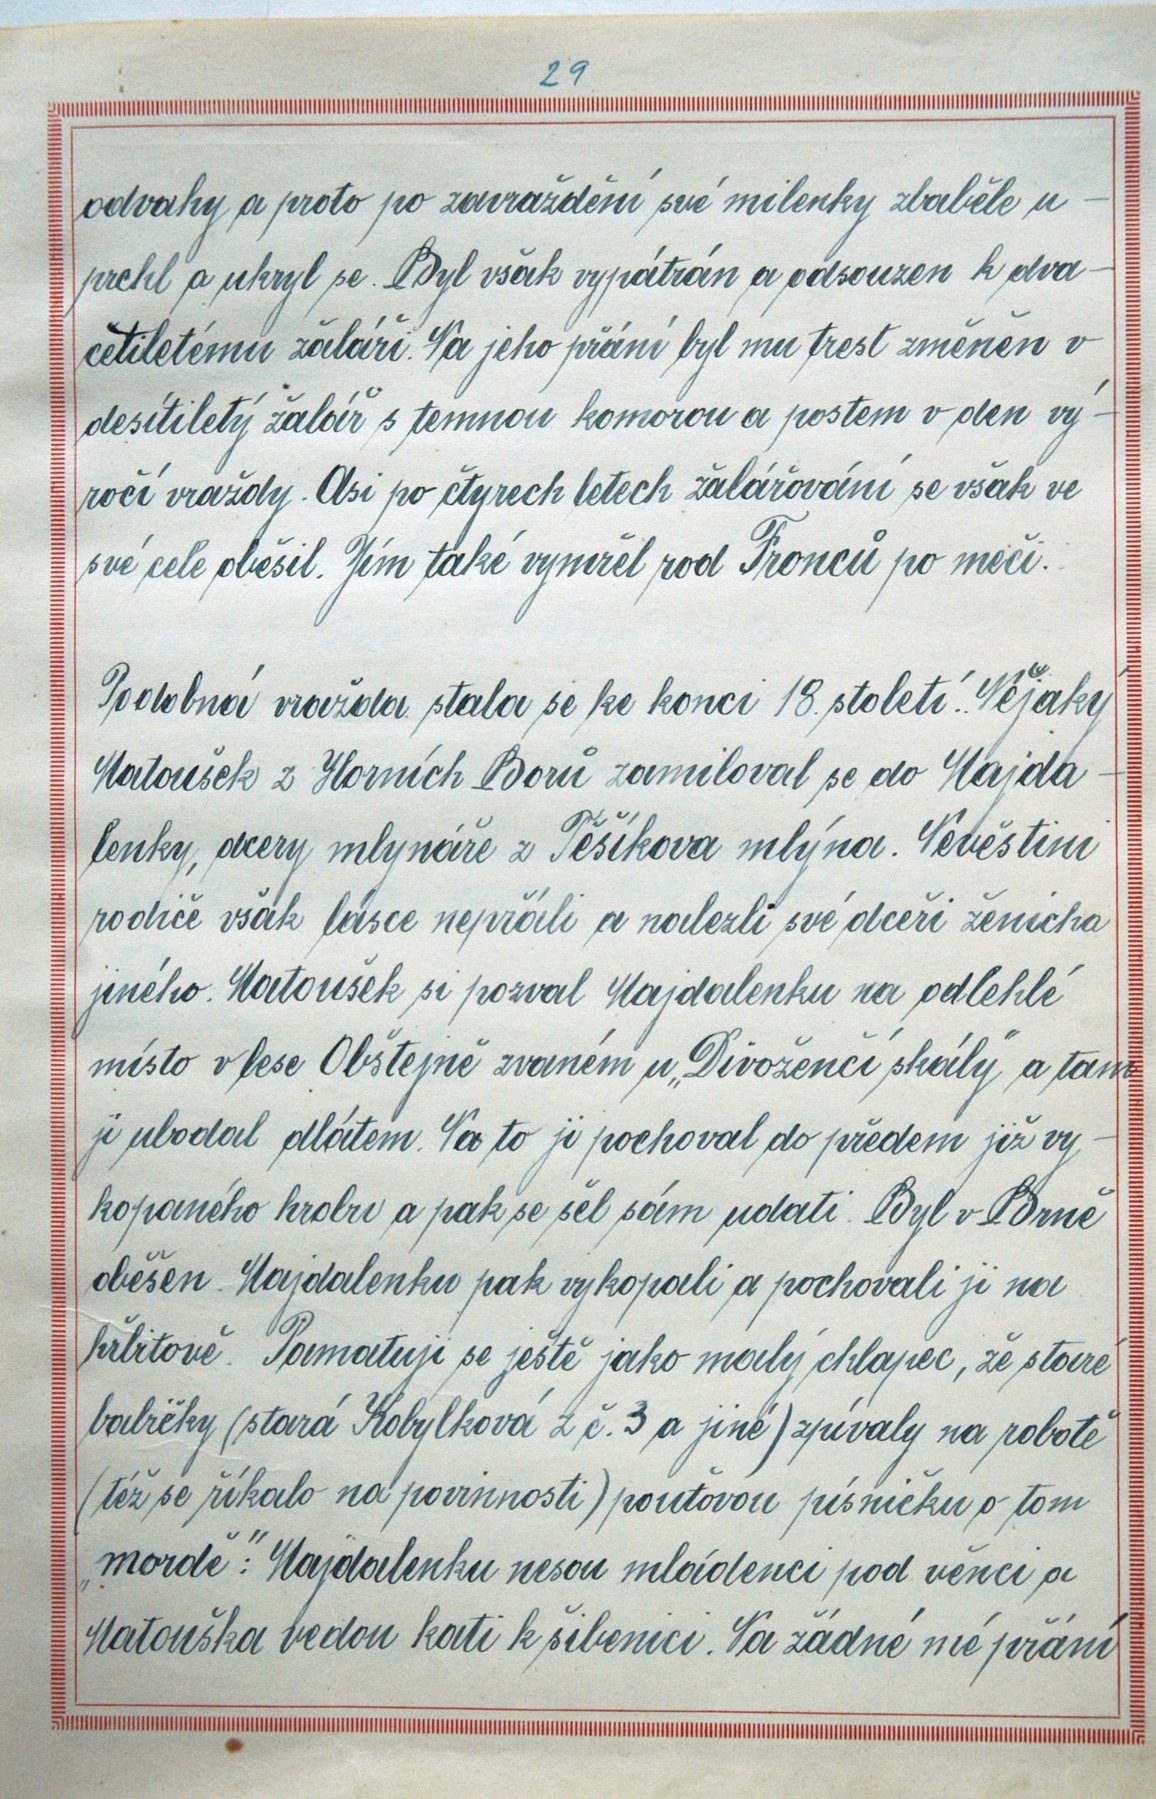 29
odvahy a proto po zavraždění své milenky zbaběle u-
prchl a ukryl se. Byl však vypátrán a odsouzen k dva-
cetiletému žaláři. Na jeho přání byl mu trest změněn v
desítiletý žalář s temnou komorou a postem v den vý-
ročí vraždy. Asi po čtyrech letech žalářování se však ve
své cele oběsil. Jím také vymřel rod Fronců po meči.
Podobná vražda stala se ke konci 18. století. Nějaký
Matoušek z Horních Borů zamiloval se do Majda-
lenky, dcery mlynáře z Těšíkova mlýna. Nevěstini
rodiče však lásce nepřáli a nalezli své dceři ženicha
jiného. Matoušek si pozval Majdalenku na odlehlé
místo v lese Obštejně zvaném u „Divoženčí skály" a tam
ji ubodal dlátem. Na to ji pochoval do předem již vy-
kopaného hrobu a pak se šel sám udati. Byl v Brně
oběšen. Majdalenku pak vykopali a pochovali ji na
hřbitově. Pamatuji se ještě jako malý chlapec, že staré
babičky (stará Kobylková z č. 3 a jiné) zpívaly na robotě
(též se říkalo na povinnosti) pouťovou písničku o tom
„mordě": Majdalenku nesou mládenci pod věnci a
Matouška vedou kati k šibenici. Na žádné mé přání